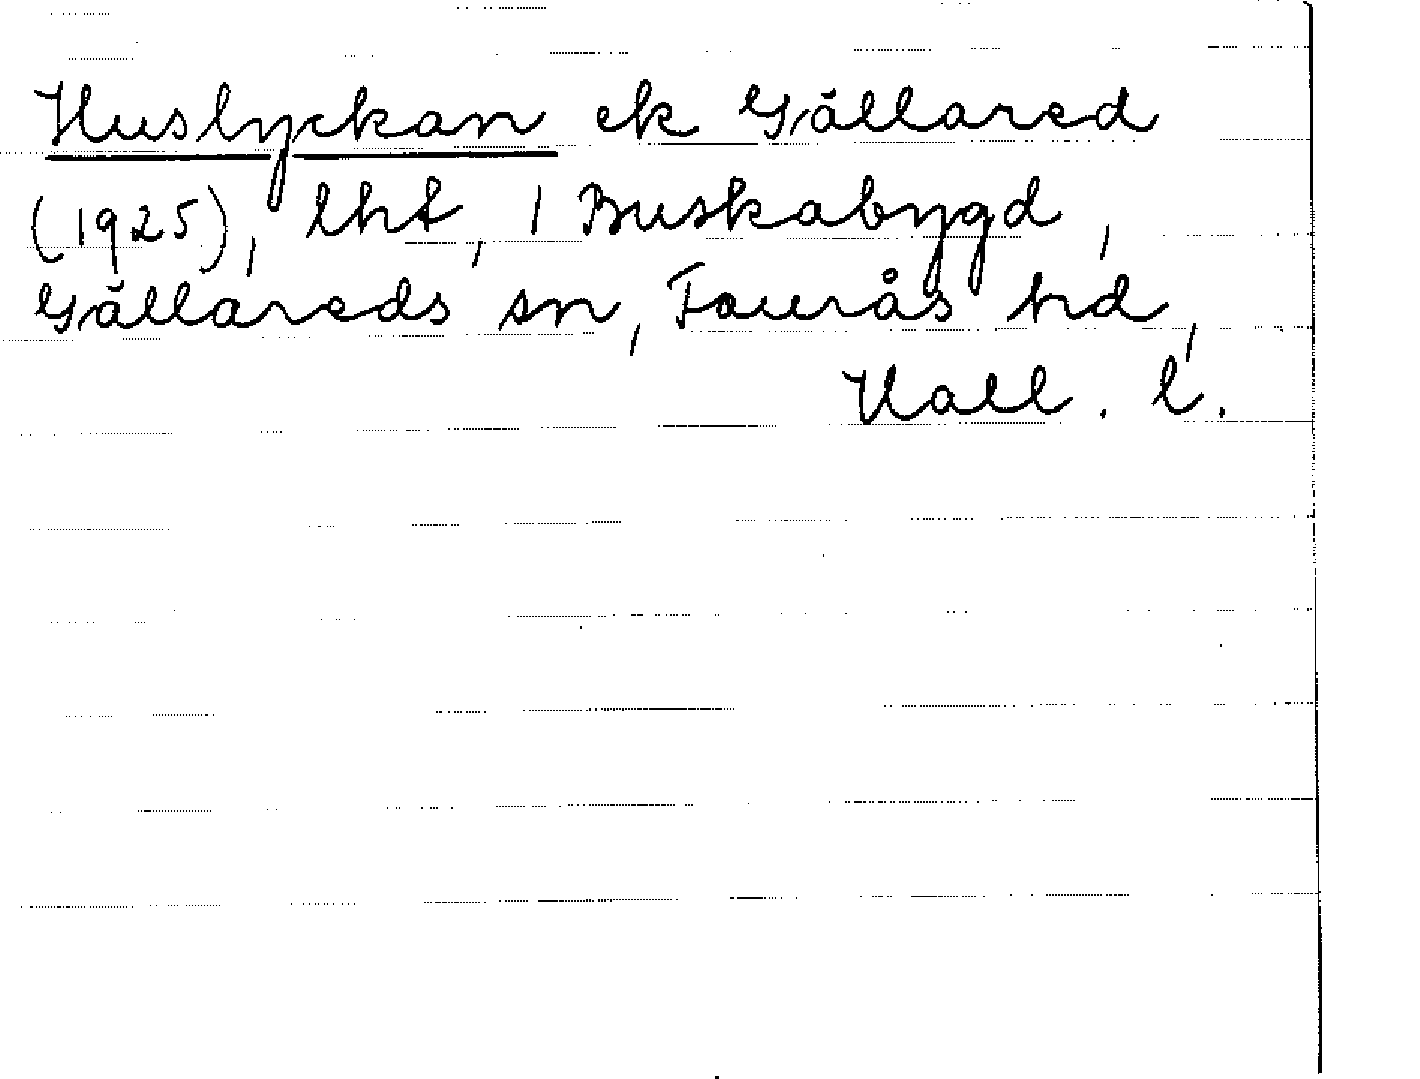 Huslyckan ek Gällared
(1925), lht, 1 Buskabygd,
Gällareds sn, Faurås hd,
Hall. l.